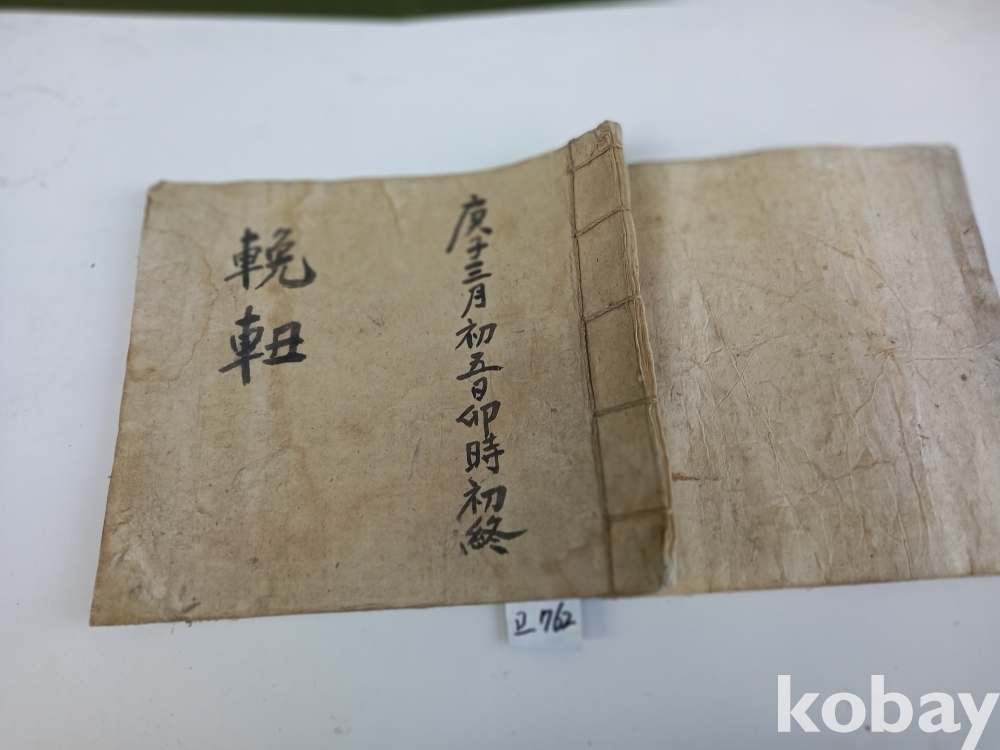 庚子三月初五日卯時初終
輓䡎
고 762
kobay